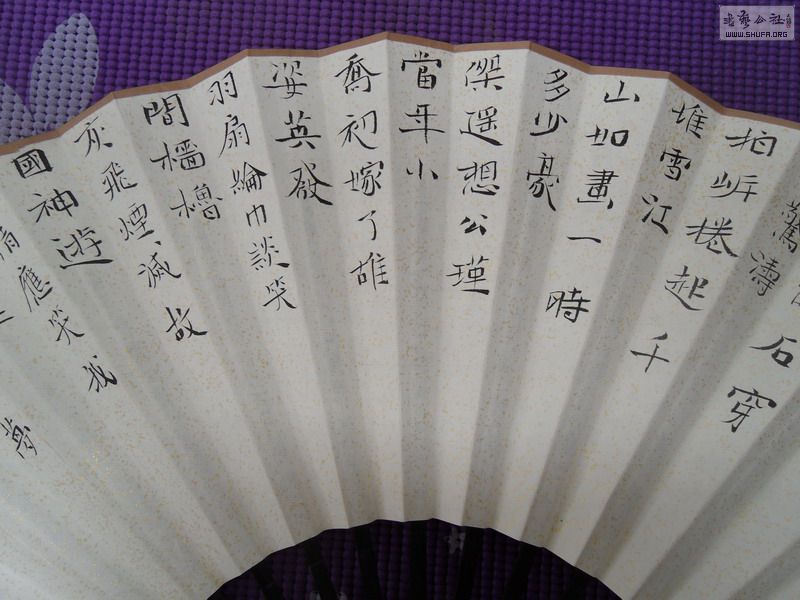 石穿
驚濤
拍岸捲起千
堆雪江
山如畫一時
多少豪
傑遥想公瑾
當年小
喬初嫁了雄
姿英發
羽扇綸巾談笑
間檣櫓
灰飛煙滅故
國神遊
情應笑我
夢
WWW.SHUFA.ORG